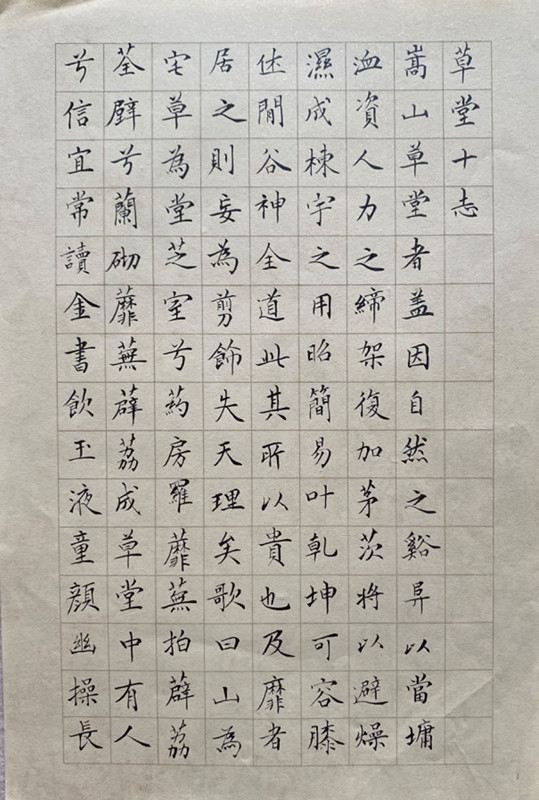 草堂十志
嵩山草堂者盖因自然之谿阜以當墉
洫資人力之締架復加茅茨將以避燥
濕成棟宇之用昭簡易叶乾坤可容膝
休閒谷神全道此其所以貴也及靡者
居之則妄為剪飾失天理矣歌曰山為
宅草為堂芝室兮葯房羅蘼蕪拍薜荔
荃壁兮蘭砌蘼蕪薜荔成草堂中有人
兮信宜常讀金書飲玉液童顏幽操長